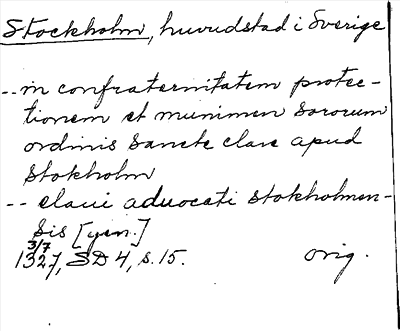 Stockholm, huvudstad i Sverige
-- in confraternitatem protec-
tionem et munimen sororum
ordinis sancte clare apud
stokholm
-- claui aduocati stokholmen-
sis [gen.]
3/7
1327, SD 4, s. 15. orig.